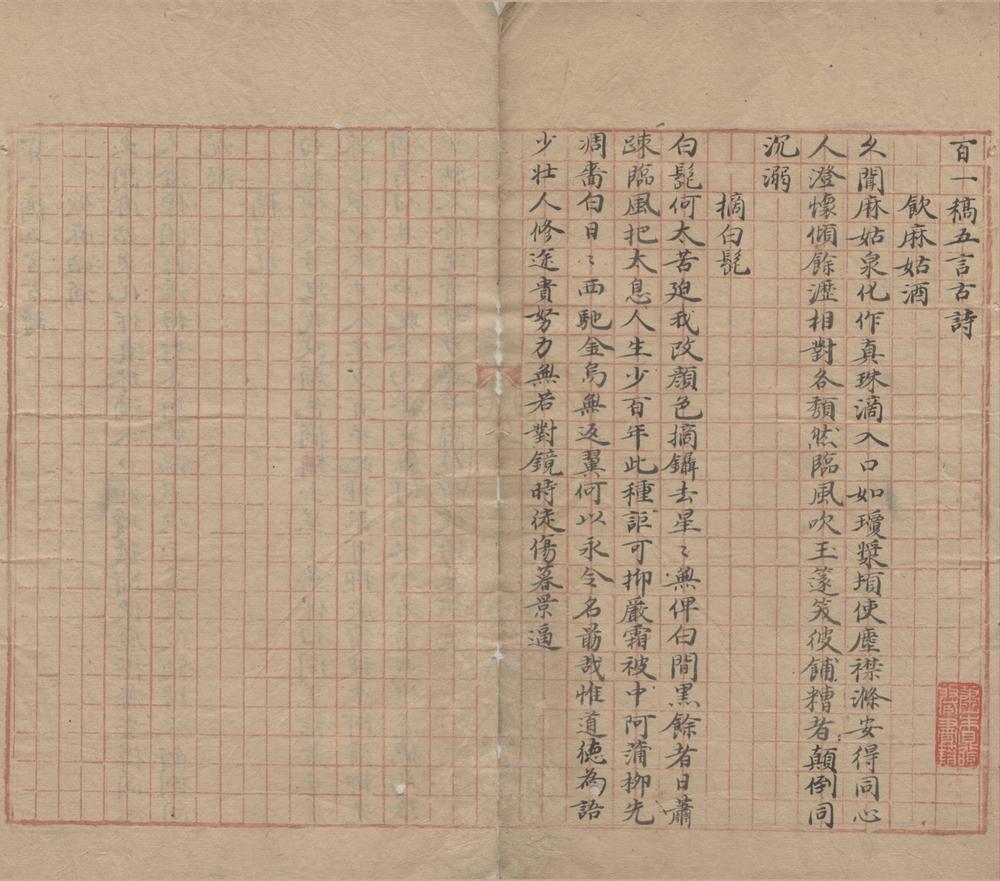 百一稿五言古詩
飲麻姑酒
久聞麻姑泉化作真珠滴入口如瓊漿頃使塵襟滌安得同心
人澄懷傾餘瀝相對各頹然臨風吹玉篴笑彼餔糟者顛倒同
沉溺
摘白髭
白髭何太苦廹我改顔色摘鑷去星〻無俾白間黑餘者日蕭
踈臨風把太息人生少百年此種詎可抑嚴霜被中阿蒲栁先
凋嗇白日〻西馳金烏無返翼何以永令名勗哉惟道徳為語
少壯人修途貴努力無若對鏡時徒傷暮景逼